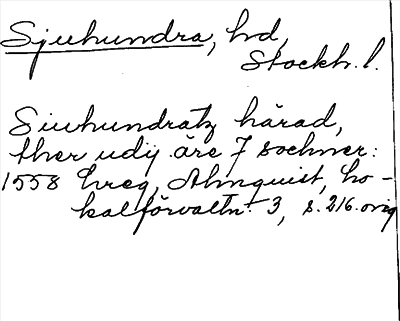 Sjuhundra, hd,
Stockh. l.
Siuhundratz härad,
ther udij äre 7 sochner:
1558 Ereg, Almquist, lo-
kalförvaltn. 3, s. 216. orig